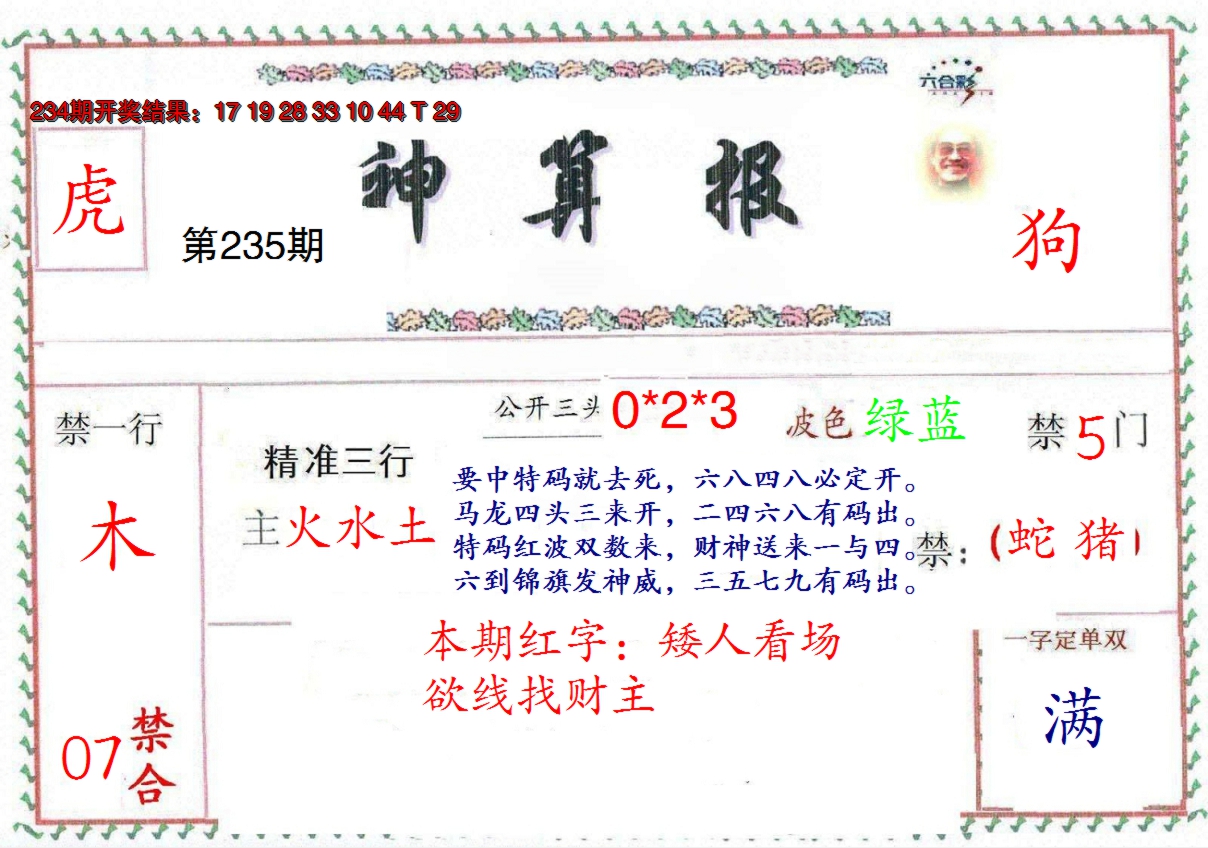 六合彩
234期开奖结果：17 19 28 33 10 44 T 29
虎
神算报
第235期
狗
禁一行
木
07
禁合
精准三行
主火水土
公开三头 0*2*3
波色 绿蓝
禁5门
要中特码就去死，六八四八必定开。
马龙四头三来开，二四六八有码出。
特码红波双数来，财神送来一与四。
六到锦旗发神威，三五七九有码出。
禁：（蛇 猪）
本期红字：矮人看场
欲线找财主
一字定单双
满